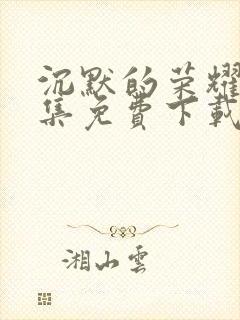 沉默的荣耀
集免費下載
湘山雲